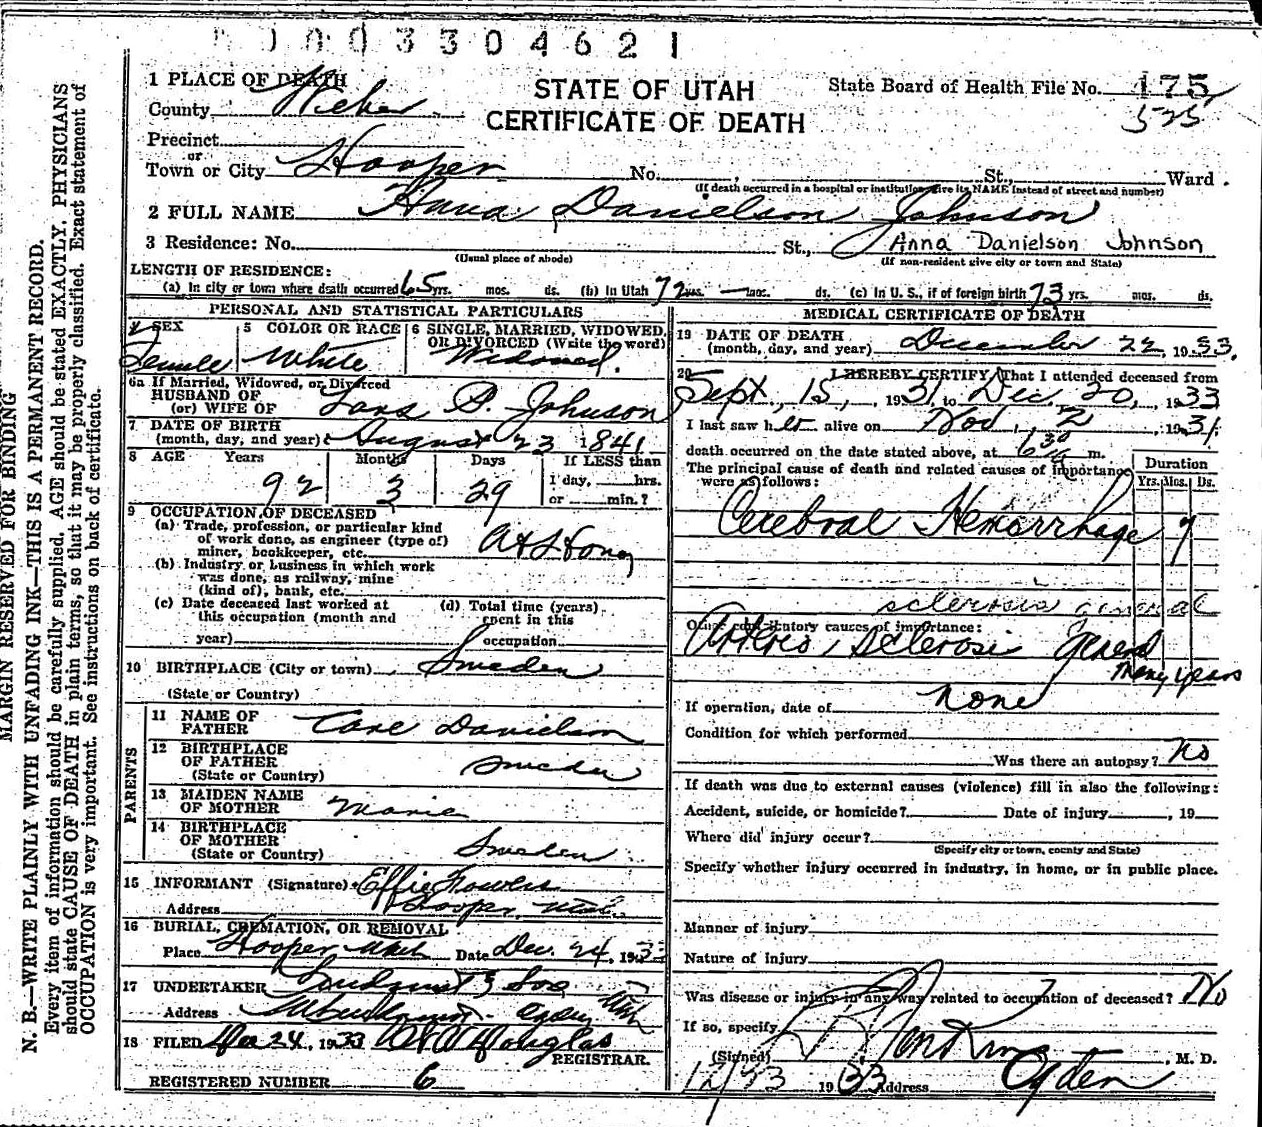 0003304621
1 PLACE OF DEATH
County Weber
STATE OF UTAH
CERTIFICATE OF DEATH
State Board of Health File No. 175
525
Precinct
or
Town or City Hooper No. , St., Ward.
(If death occurred in a hospital or institution give its NAME instead of street and number)
2 FULL NAME Hana Danielson Johnson
3 Residence: No. St., Anna Danielson Johnson
(Usual place of abode) (If non-resident give city or town and State)
LENGTH OF RESIDENCE:
(a) In city or town where death occurred 65 yrs. mos. ds. (b) In Utah 72 yrs. — mos. ds. (c) In U.S., if of foreign birth 73 yrs. mos. ds.
PERSONAL AND STATISTICAL PARTICULARS
4 SEX
Female
5 COLOR OR RACE
White
6 SINGLE, MARRIED, WIDOWED, OR DIVORCED (Write the word)
Widowed.
6a If Married, Widowed, or Divorced
HUSBAND OF
(or) WIFE OF Lars P. Johnson
7 DATE OF BIRTH
(month, day, and year) August 23 1841
8 AGE Years Months Days If LESS than
92 3 29 1 day, hrs.
or min.?
9 OCCUPATION OF DECEASED
(a) Trade, profession, or particular kind
of work done, as engineer (type of)
miner, bookkeeper, etc. At Home
(b) Industry or business in which work
was done, as railway, mine
(kind of), bank, etc.
(c) Date deceased last worked at
this occupation (month and
year)
(d) Total time (years)
spent in this
occupation
10 BIRTHPLACE (City or town) Sweden
(State or Country)
PARENTS
11 NAME OF
FATHER Carl Danielson
12 BIRTHPLACE
OF FATHER Sweden
(State or Country)
13 MAIDEN NAME
OF MOTHER Marie
14 BIRTHPLACE
OF MOTHER Sweden
(State or Country)
15 INFORMANT (Signature) Effie Fowers
Address Hooper, Utah.
16 BURIAL, CREMATION, OR REMOVAL
Place Hooper Utah Date Dec. 24, 1933
17 UNDERTAKER & Son
Address Ogden Utah
18 FILED Dec 24, 1933 Douglas
REGISTRAR.
REGISTERED NUMBER 6
MEDICAL CERTIFICATE OF DEATH
19 DATE OF DEATH
(month, day, and year) December 22 1933.
20 I HEREBY CERTIFY, That I attended deceased from
Sept., 15, 1931, to Dec. 20, 1933
I last saw her alive on Nov., 2, 1931
death occurred on the date stated above, at 6 30 m.
The principal cause of death and related causes of importance
were as follows:
Duration
Yrs. Mos. Ds.
Cerebral Hemorrhage 7
sclerosis general
Other contributory causes of importance:
Arterio, sclerosi general
many years
If operation, date of none
Condition for which performed
Was there an autopsy? No
If death was due to external causes (violence) fill in also the following:
Accident, suicide, or homicide? Date of injury , 19
Where did injury occur?
(Specify city or town, county and State)
Specify whether injury occurred in industry, in home, or in public place.
Manner of injury
Nature of injury
Was disease or injury in any way related to occupation of deceased? No
If so, specify
(Signed) , M. D.
12/23 1933 Address Ogden
MARGIN RESERVED FOR BINDING
N. B.—WRITE PLAINLY WITH UNFADING INK—THIS IS A PERMANENT RECORD.
Every item of information should be carefully supplied. AGE should be stated EXACTLY. PHYSICIANS
should state CAUSE OF DEATH in plain terms, so that it may be properly classified. Exact statement of
OCCUPATION is very important. See instructions on back of certificate.